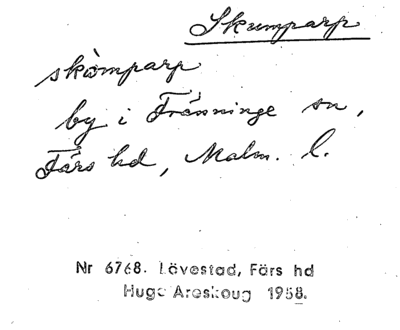 Skumparp
skòmparp
by i Tranninge sn,
Färs hd, Malm. l.
Nr 6768. Lövestad, Färs hd
Hugo Areskoug 1958.